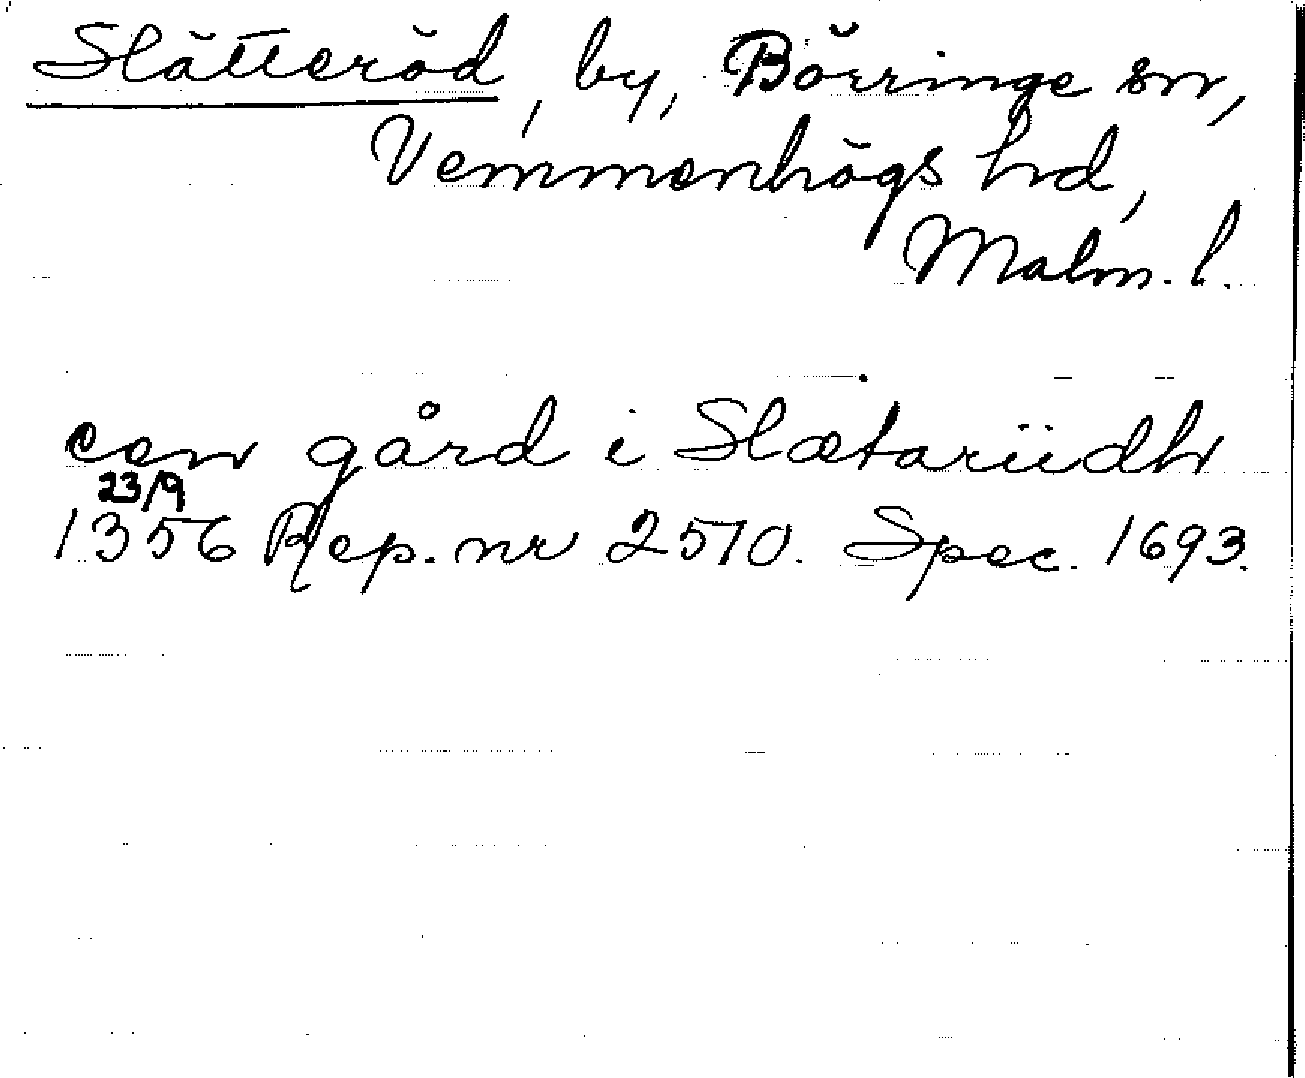 Slätteröd, by, Börringe sn,
Vemmenhögs hd,
Malm. l.
een gård i Slætariidh
23/9
1356 Rep. nr 2570. Spec. 1693.